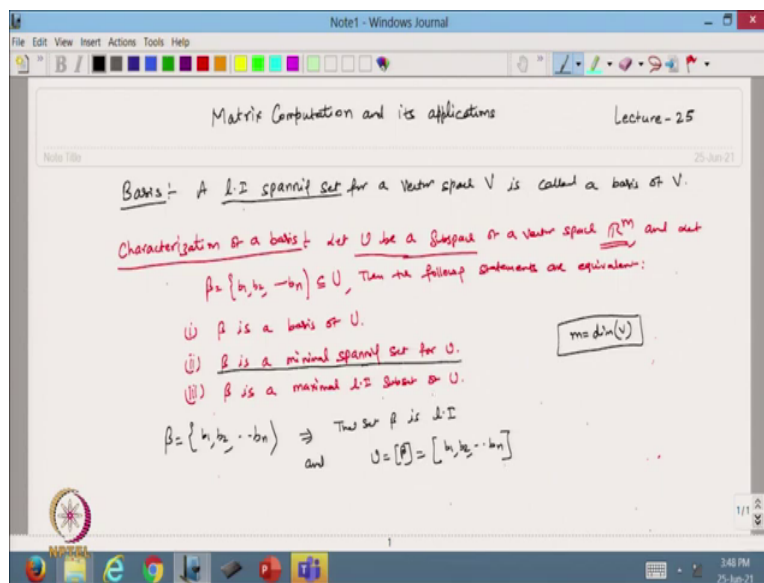 Note1 - Windows Journal
File Edit View Insert Actions Tools Help
B I
Matrix Computation and its applications
Lecture - 25
Note Title
25-Jun-21
Basis :- A l.I spannif set for a vector space V is called a basis of V.
Characterization of a basis :- Let U be a Subspace of a vector space ℝ^m and let
β = {b1, b2, -- bn} ⊆ U, Then the following statements are equivalent:
(i) β is a basis of U.
(ii) β is a minimal spannif set for U.
(iii) β is a maximal l.I Subset of U.
m = dim(V)
β = {b1, b2, -- bn} ⇒ The set β is l.I
and U = [β] = [b1, b2, -- bn]
NPTEL
1/1
1
3:48 PM
25-Jun-21